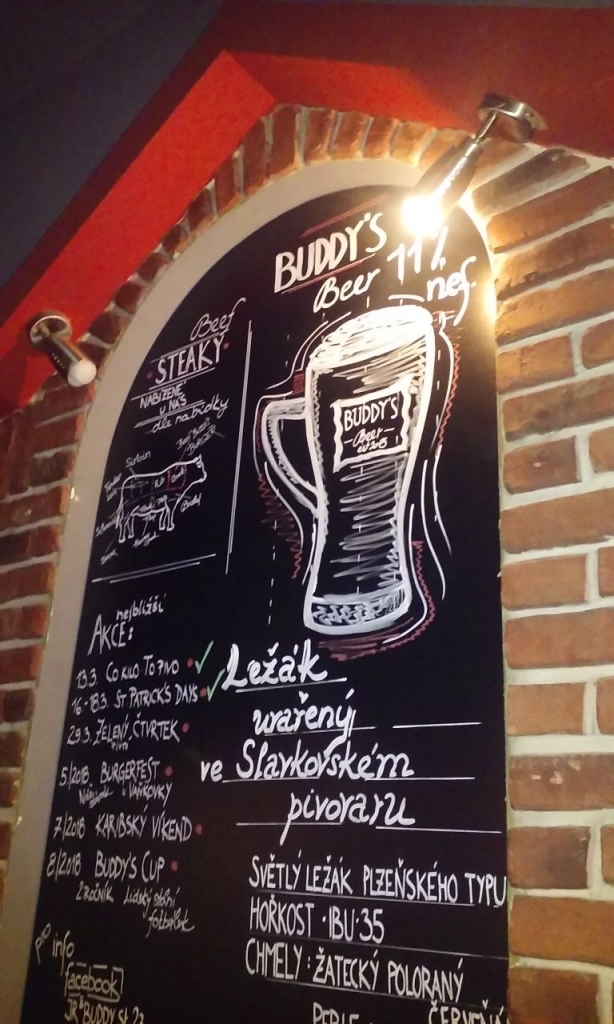 BUDDY'S 11%
Beer nef.
Beef
STEAKY
NABÍZENÉ
U NÁS
dle nabídky
Sirloin
BUDDY'S
Beer
est 2015
nejbližší
AKCE:
13.3. CO KILO TO PIVO
16.-18.3. ST PATRICK'S DAYS
29.3. ZELENÝ ČTVRTEK
pivní
5/2018 BURGERFEST
VAŇKOVKY
7/2018 KARIBSKÝ VÍKEND
8/2018 BUDDY'S CUP
2. ROČNÍK Lidský stolní
fotbálek
Ležák
uvařený
ve Slavkovském
pivovaru
SVĚTLÝ LEŽÁK PLZEŇSKÉHO TYPU
HOŘKOST · IBU · 35
CHMELY : ŽATECKÝ POLORANÝ
PERLE ČERVEŇÁK
pro info
facebook